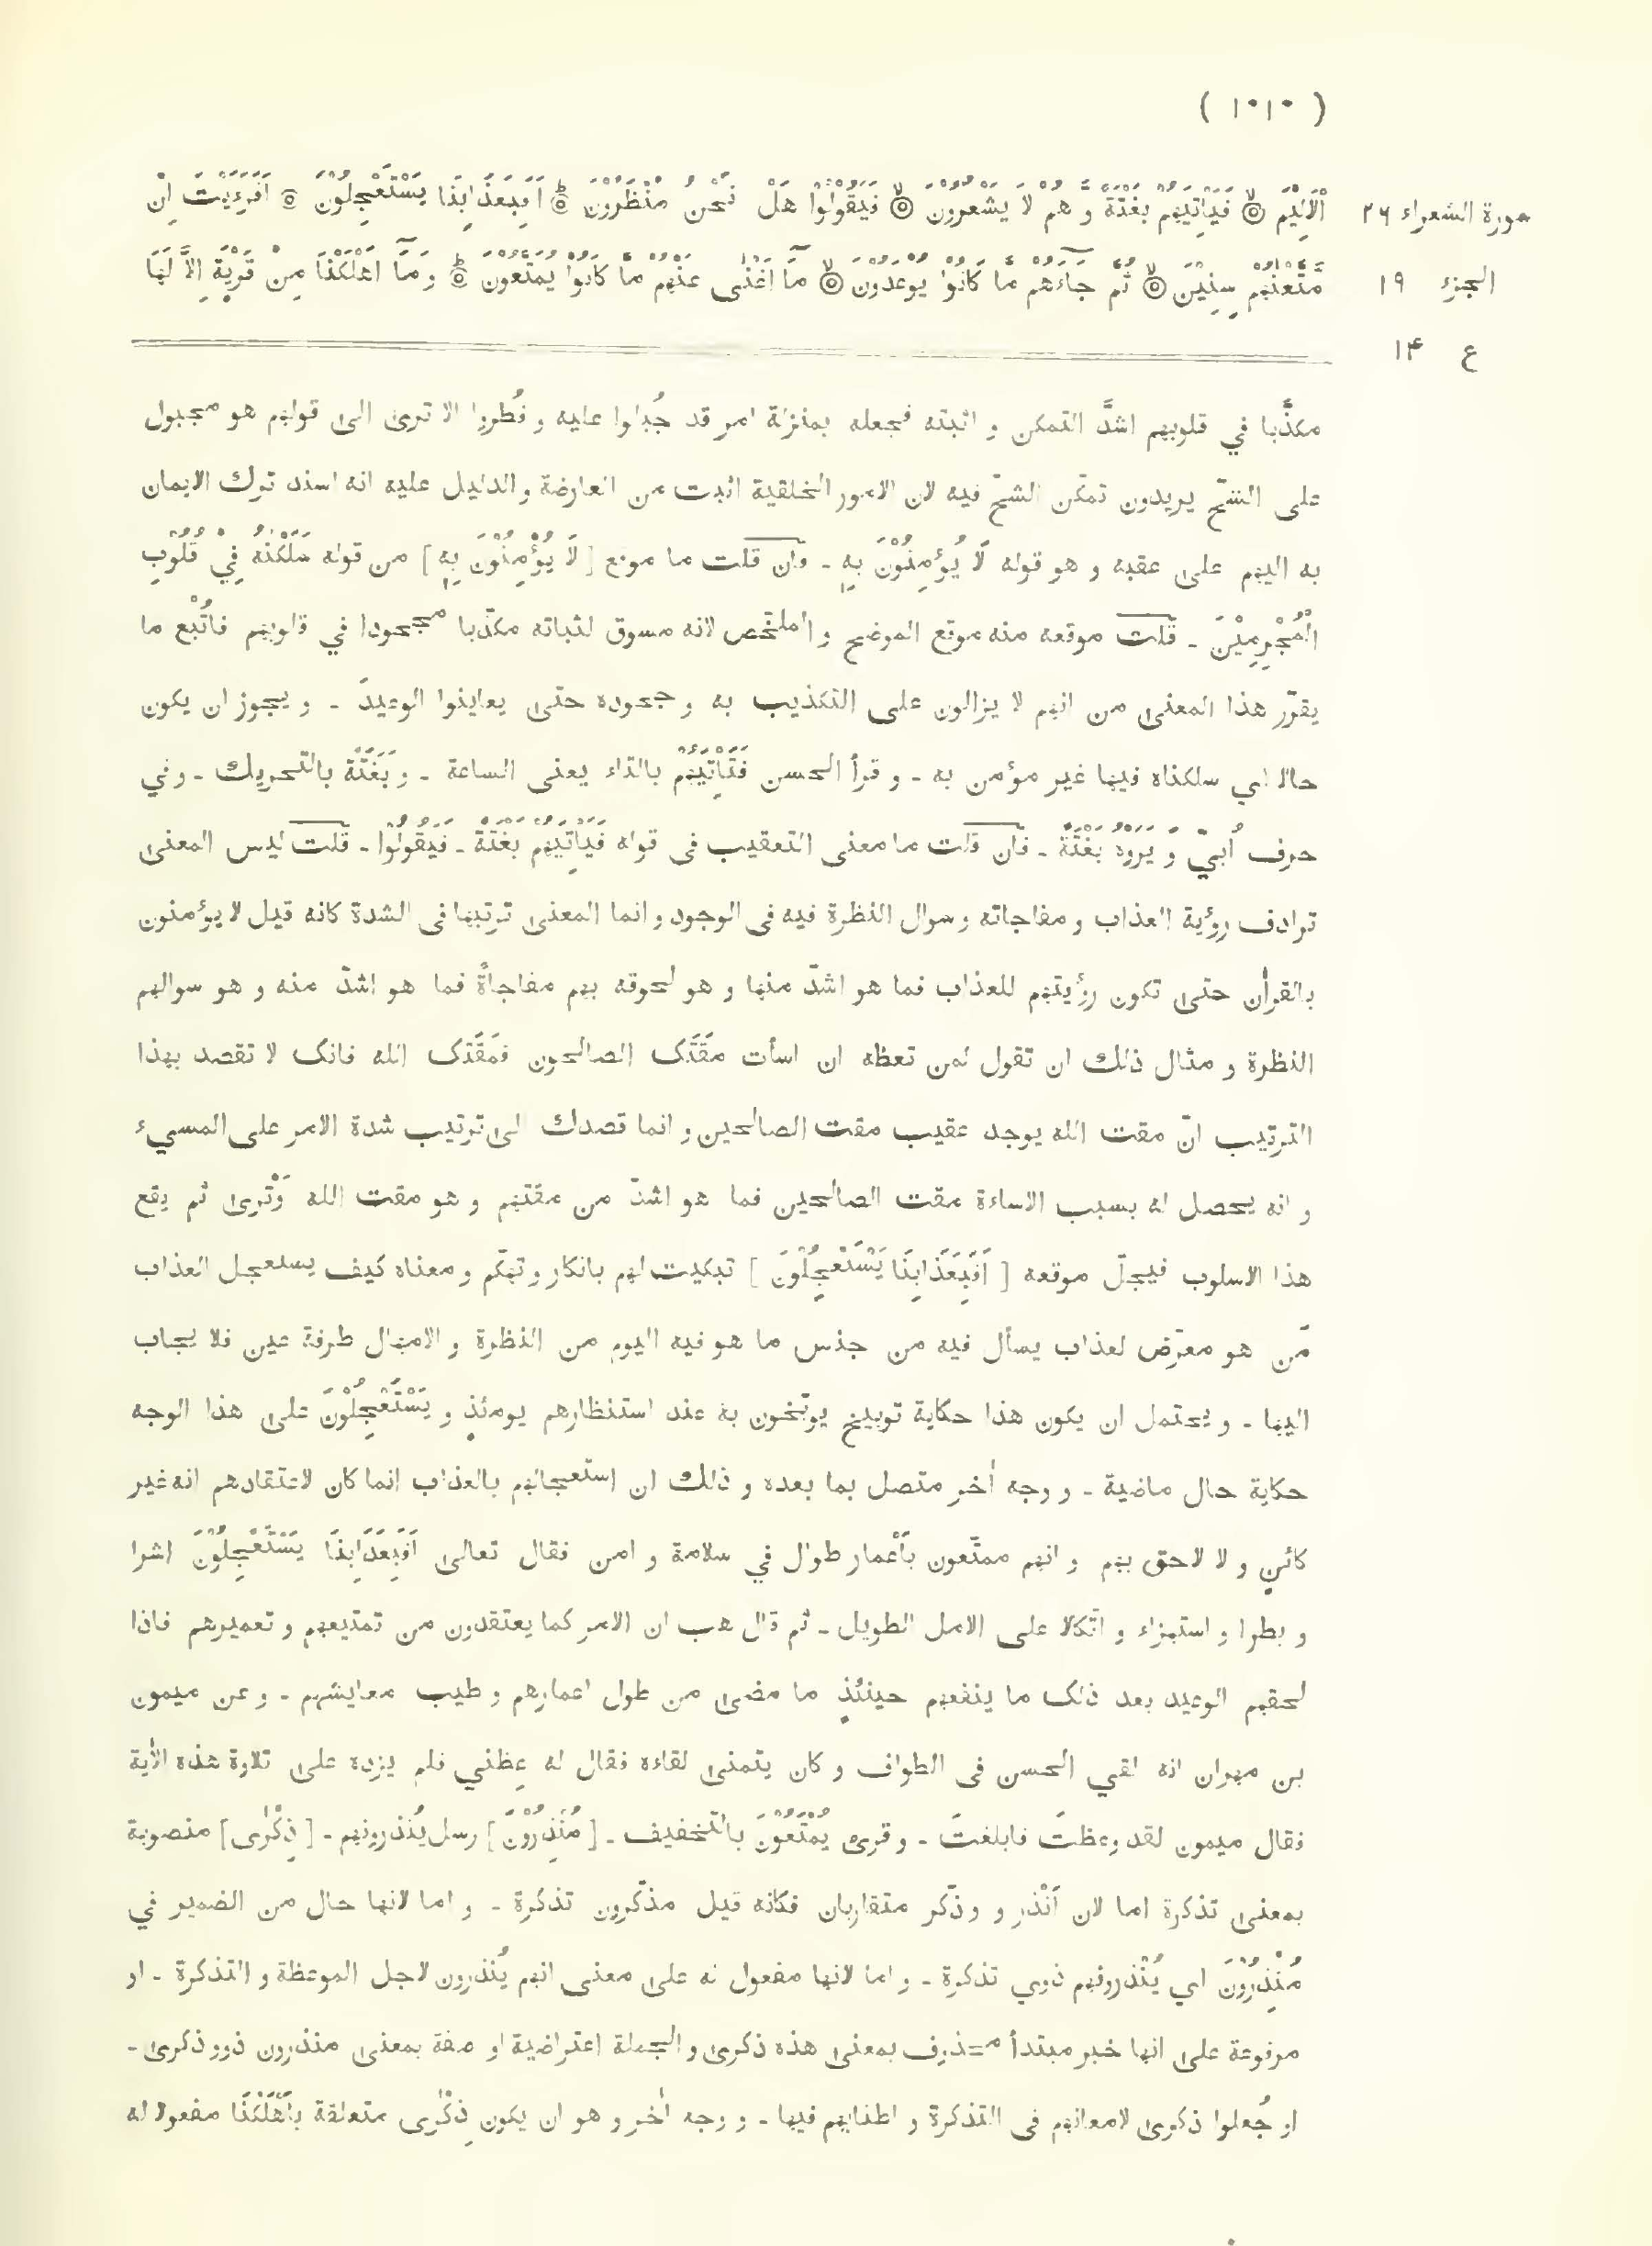 ( ١٠١٠ )
سورة الشعراء ٢٦
الجزء ١٩
ع ١۴
الْاَلِيْمَ ۞ فَيَاْتِيَهُمْ بَغْتَةً وَّ هُمْ لَا يَشْعُرُوْنَ ۞ فَيَقُوْلُوْا هَلْ نَحْنُ مُنْظَرُوْنَ ۞ اَفَبِعَذَابِنَا يَسْتَعْجِلُوْنَ ۞ اَفَرَءَيْتَ اِنْ
مَّتَّعْنٰهُمْ سِنِيْنَ ۞ ثُمَّ جَآءَهُمْ مَّا كَانُوْا يُوْعَدُوْنَ ۞ مَآ اَغْنٰى عَنْهُمْ مَّا كَانُوْا يُمَتَّعُوْنَ ۞ وَمَآ اَهْلَكْنَا مِنْ قَرْيَةٍ اِلَّا لَهَا
مكذَّبا في قلوبهم اشدَّ التمكن و اثبته فجعله بمنزلة امر قد جُبلوا عليه و فُطروا الا ترى الى قولهم هو مجبول
على الشحّ يريدون تمكّن الشحّ فيه لان الامور الخلقية اثبت من العارضة و الدليل عليه انه اسند ترك الايمان
به اليهم على عقبه و هو قوله لَا يُؤْمِنُوْنَ بِهٖ ـ فان قلت ما موقع [ لَا يُؤْمِنُوْنَ بِهٖ ] من قوله سَلَكْنٰهُ فِيْ قُلُوْبِ
الْمُجْرِمِيْنَ ـ قلت موقعه منه موقع الموضح و الملخص لانه مسوق لثباته مكذّبا مجحودا في قلوبهم فاُتْبع ما
يقرّر هذا المعنى من انهم لا يزالون على التكذيب به و جحوده حتى يعاينوا الوعيد ـ و يجوز ان يكون
حالا اي سلكناه فيها غير مؤمن به ـ و قرأ الحسن فَتَاْتِيَهُمْ بالتاء يعنى الساعة ـ و بَغَتَةً بالتحريك ـ و في
حرف اُبيّ وَ يَرَوْهُ بَغْتَةً ـ فان قلت ما معنى التعقيب فى قوله فَيَاْتِيَهُمْ بَغْتَةً ـ فَيَقُوْلُوْا ـ قلت ليس المعنى
ترادف رؤية العذاب و مفاجاته و سوال النظرة فيه فى الوجود و انما المعنى ترتبها فى الشدة كانه قيل لا يؤمنون
بالقرأن حتى تكون رؤيتهم للعذاب فما هو اشدّ منها و هو لحوقه بهم مفاجاةً فما هو اشدّ منه و هو سوالهم
النظرة و مثال ذلك ان تقول لمن تعظه ان اسأت مَقَتَك الصالحون فمَقَتَك الله فانك لا تقصد بهذا
الترتيب انّ مقت الله يوجد عقيب مقت الصالحين و انما قصدك الى ترتيب شدة الامر على المسيء
و انه يحصل له بسبب الاساءة مقت الصالحين فما هو اشدّ من مقتهم و هو مقت الله وَتْرى ثم يقع
هذا الاسلوب فيجلّ موقعه [ اَفَبِعَذَابِنَا يَسْتَعْجِلُوْنَ ] تبكيت لهم بانكار و تهكّم و معناه كيف يستعجل العذاب
مَن هو معرّض لعذاب يسأل فيه من جنس ما هو فيه اليوم من النظرة و الامهال طرفة عين فلا يجاب
اليها ـ و يحتمل ان يكون هذا حكاية توبيخ يوبّخون به عند استنظارهم يومئذٍ و يَسْتَعْجِلُوْنَ على هذا الوجه
حكاية حال ماضية ـ و وجه أخر متصل بما بعده و ذلك ان استعجالهم بالعذاب انما كان لاعتقادهم انه غير
كائنٍ و لا لاحق بهم و انهم ممتّعون باَعْمار طوال في سلامة و امن فقال تعالى اَفَبِعَذَابِنَا يَسْتَعْجِلُوْنَ اشرا
و بطرا و استهزاء و اتّكالا على الامل الطويل ـ ثم قال هب ان الامر كما يعتقدون من تمتيعهم و تعميرهم فاذا
لحقهم الوعيد بعد ذلك ما ينفعهم حينئذٍ ما مضى من طول اعمارهم و طيب معايشهم ـ و عن ميمون
بن مهران انه لقي الحسن فى الطواف و كان يتمنى لقاءه فقال له عِظني فلم يزده على تلاوة هذه الأية
فقال ميمون لقد وعظتَ فابلغتَ ـ و قرئ يُمْتَعُوْنَ بالتخفيف ـ [ مُنْذِرُوْنَ ] رسل يُنذرونهم ـ [ ذِكْرٰى ] منصوبة
بمعنى تذكرة اما لان اَنْذر و وذكّر متقاربان فكانه قيل مذكّرون تذكرة ـ و اما لانها حال من الضمير في
مُنْذِرُوْنَ اي يُنْذرونهم ذوي تذكرة ـ و اما لانها مفعول له على معنى انهم يُنْذرون لاجل الموعظة و التذكرة ـ او
مرفوعة على انها خبر مبتدأ محذوف بمعنى هذه ذكرى و الجملة اعتراضية او صفة بمعنى منذرون ذوو ذكرى ـ
او جُعلوا ذكرى لامعانهم فى التذكرة و اطنابهم فيها ـ و وجه أخر و هو ان يكون ذِكْرٰى متعلقة باَهْلَكْنَا مفعولا له